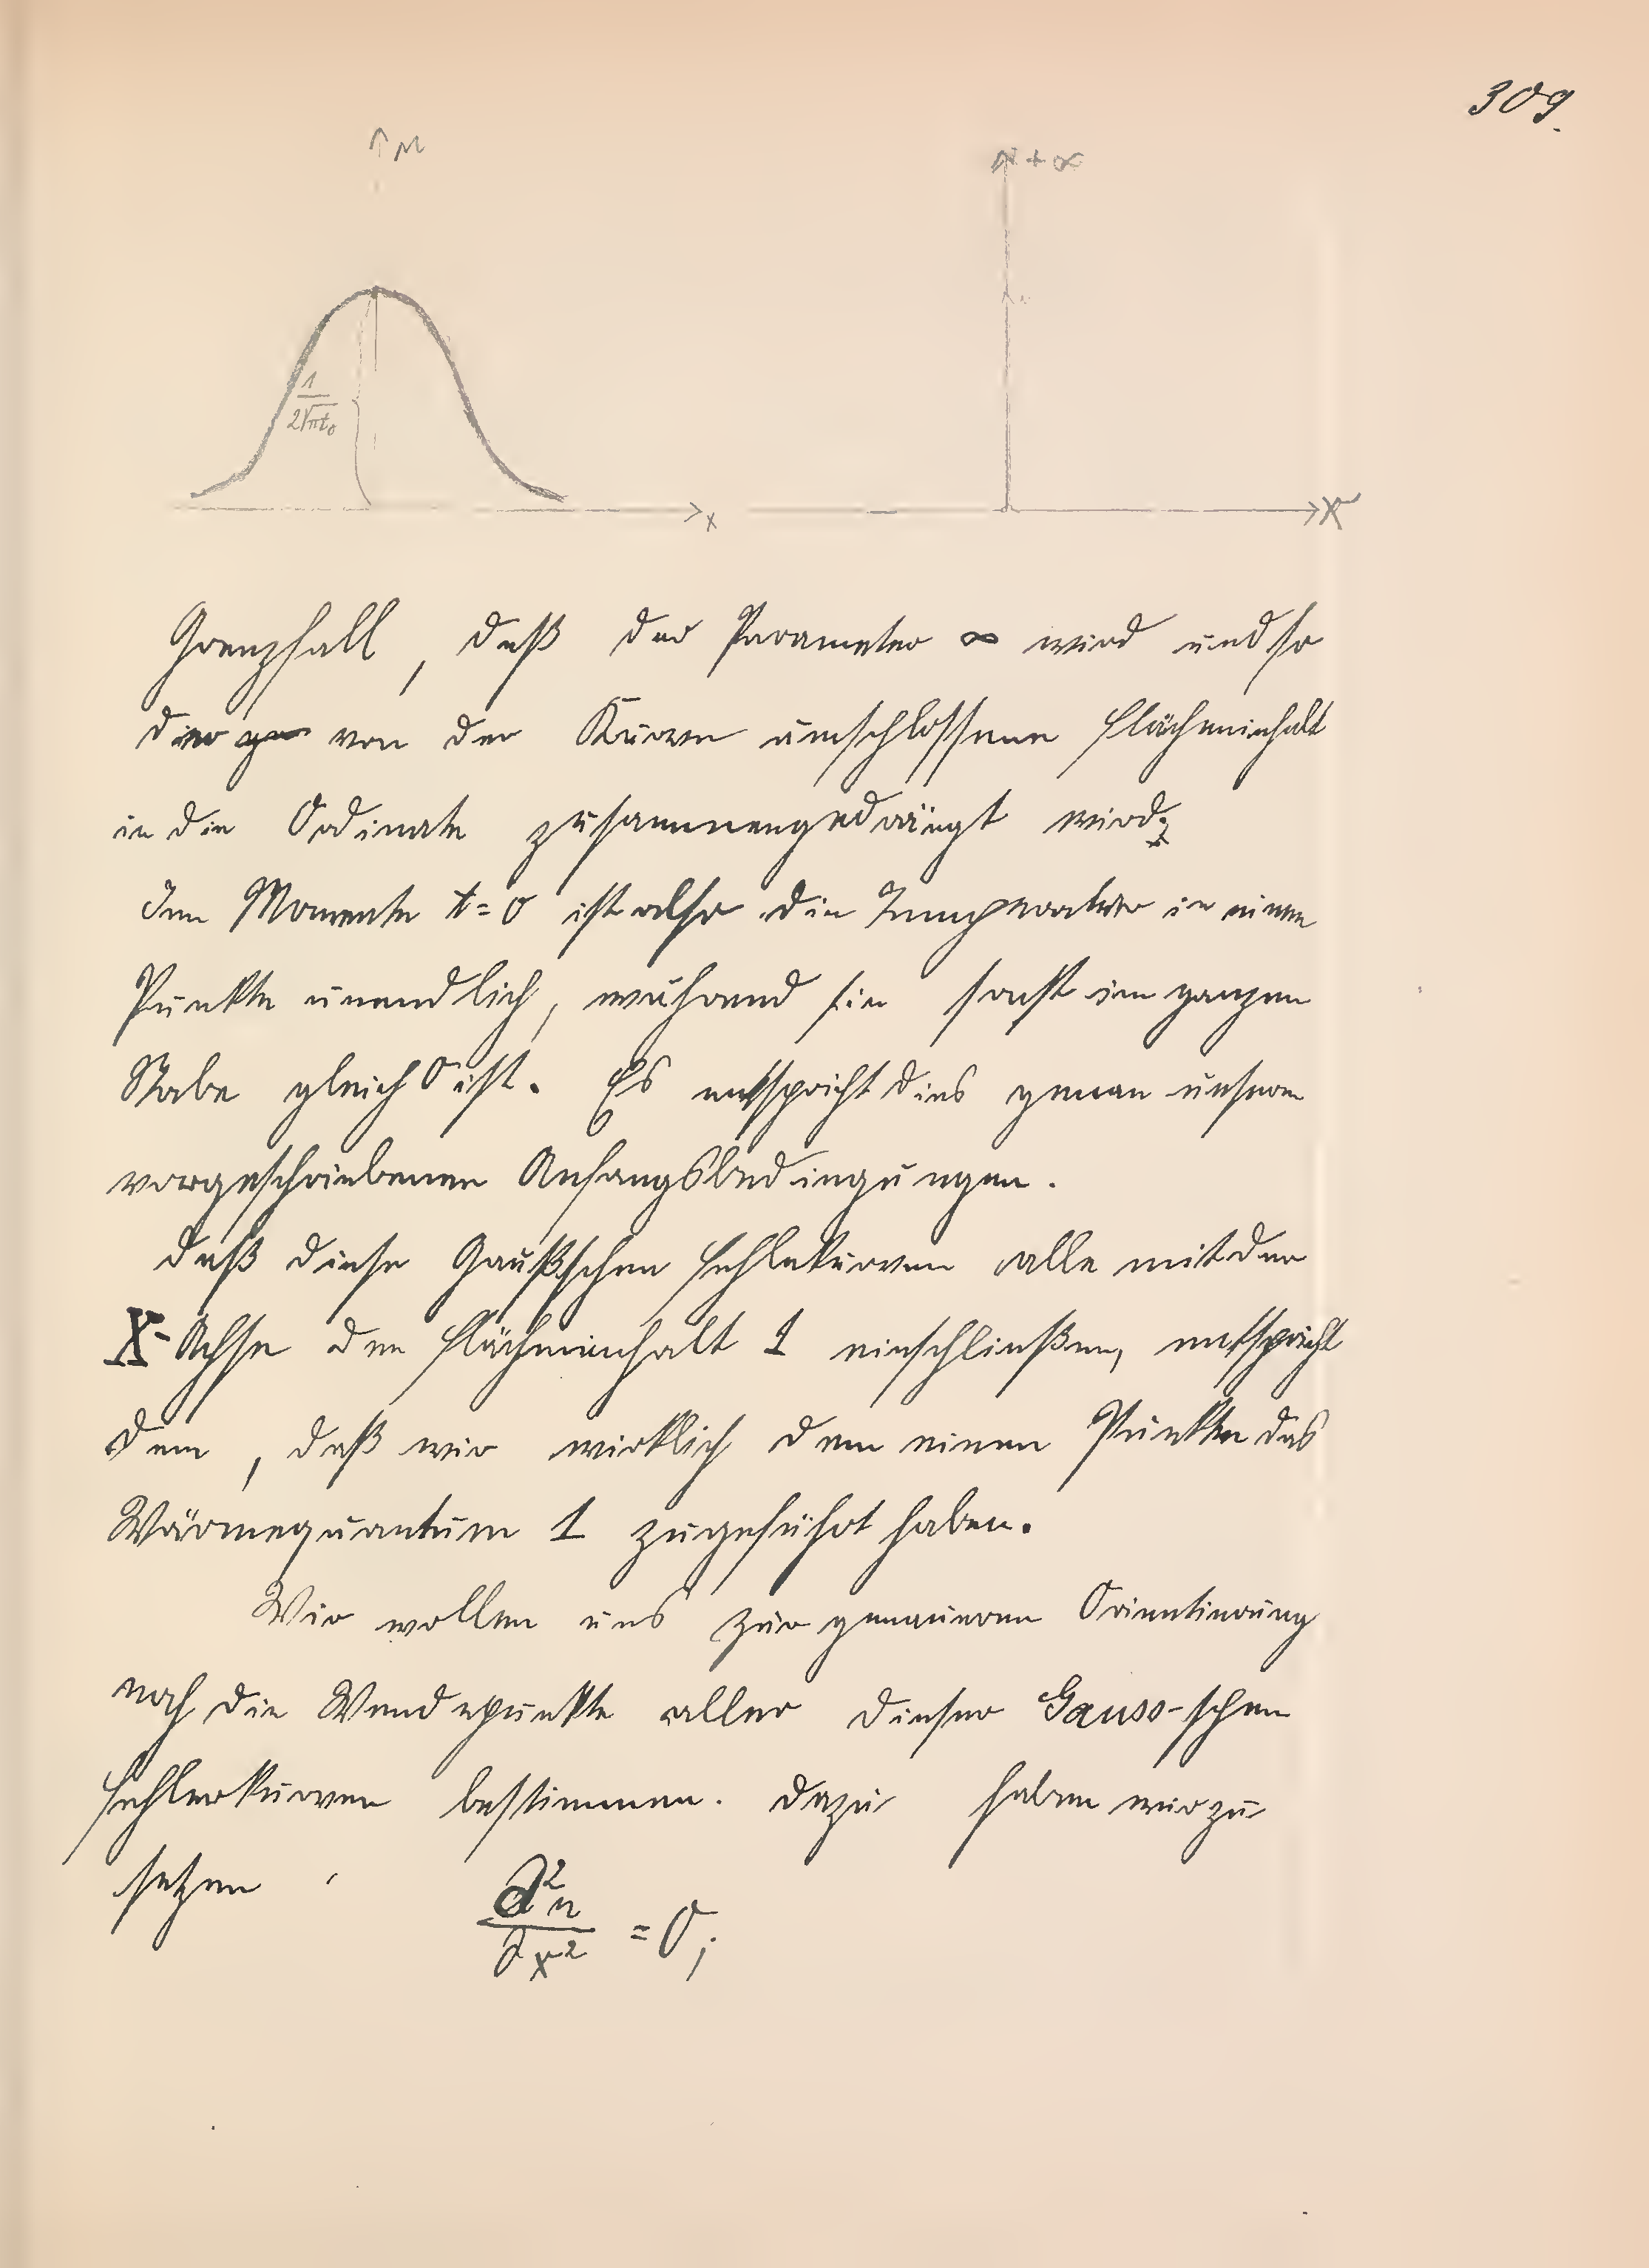 309.
u
+ ∞
1
2√πt₀
x
X
Grenzfall, daß der Parameter ∞ wird und so
der von der Kurve umschlossene Flächeninhalt
in die Ordinate zusammengedrängt wird;
Im Momente t=0 ist also die Temperatur in einem
Punkte unendlich, während sie sonst im ganzen
Stabe gleich 0 ist. Es entspricht dies genau unsern
vorgeschriebenen Anfangsbedingungen.
Daß diese Gaußschen Fehlerkurven alle mit der
X-Achse den Flächeninhalt 1 einschließen, entspricht
dem, daß wir wirklich dem einen Punkte das
Wärmequantum 1 zugeführt haben.
Wir wollen uns zur genaueren Orientierung
noch die Wendepunkte aller dieser Gauss-schen
Fehlerkurven bestimmen. Dazu haben wir zu
setzen
∂²u
∂x² = 0;